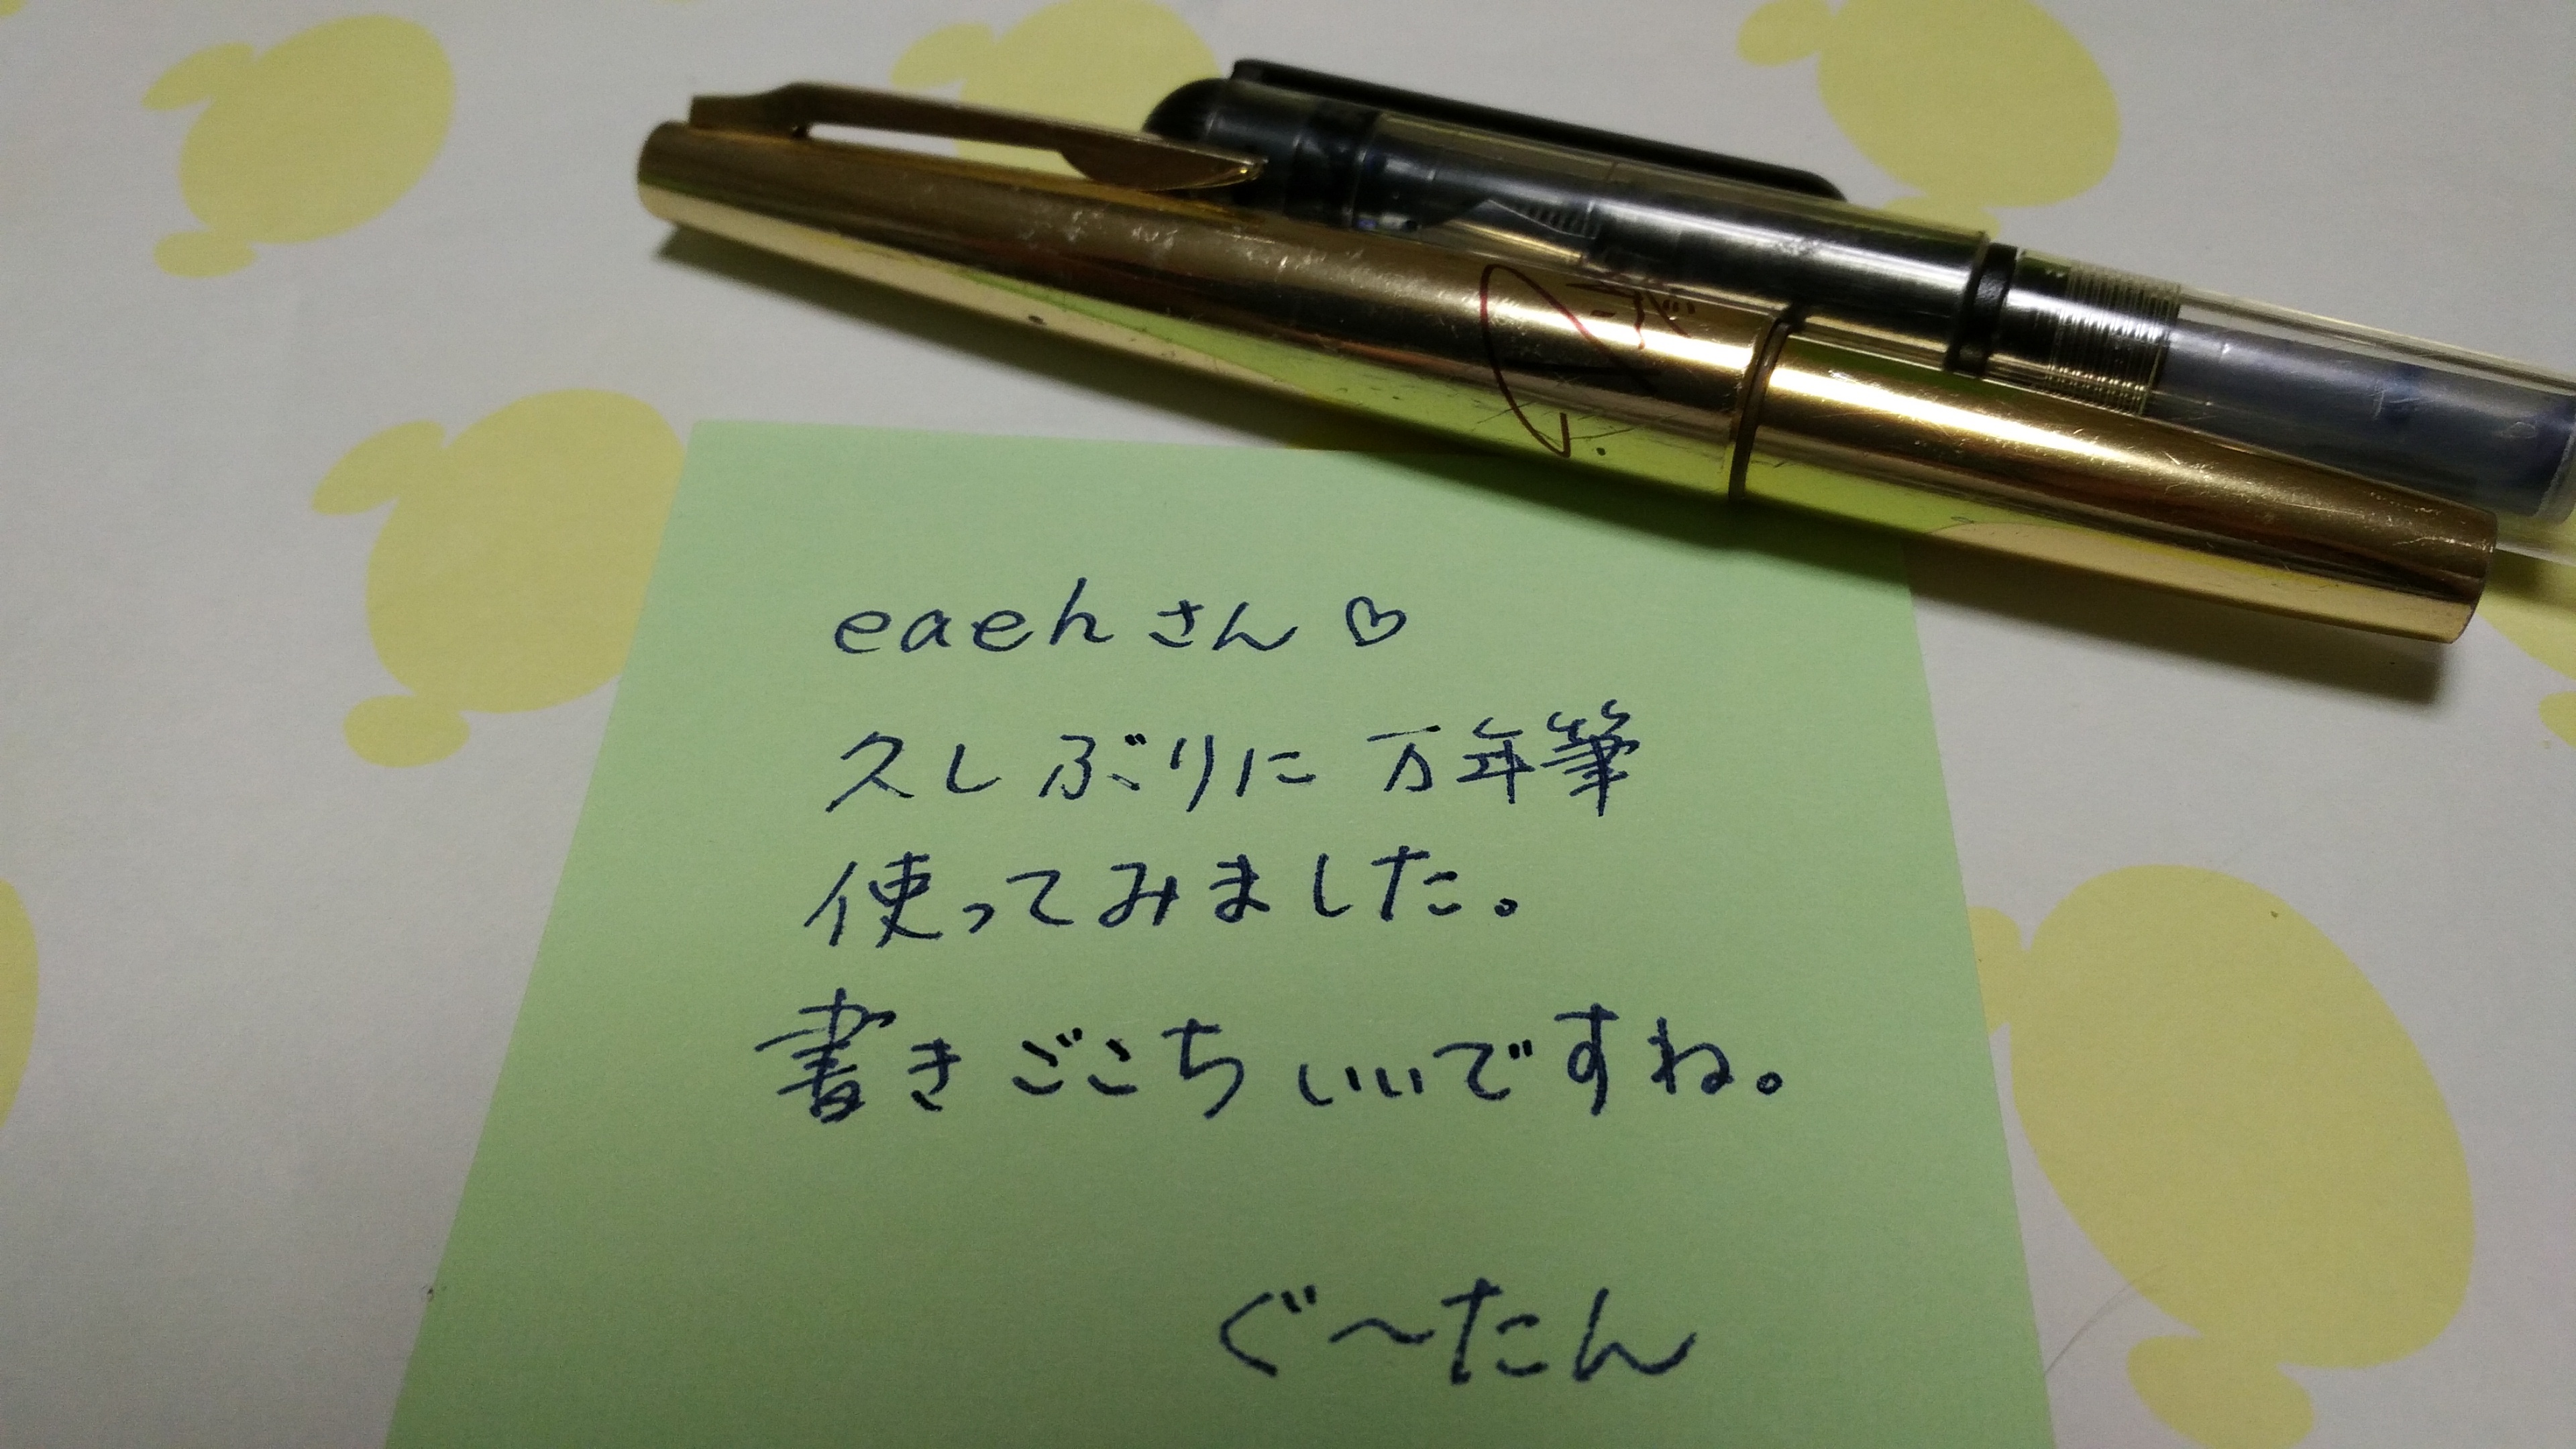 eaehさん♡
久しぶりに万年筆
使ってみました。
書きごこちいいですね。
ぐ〜たん